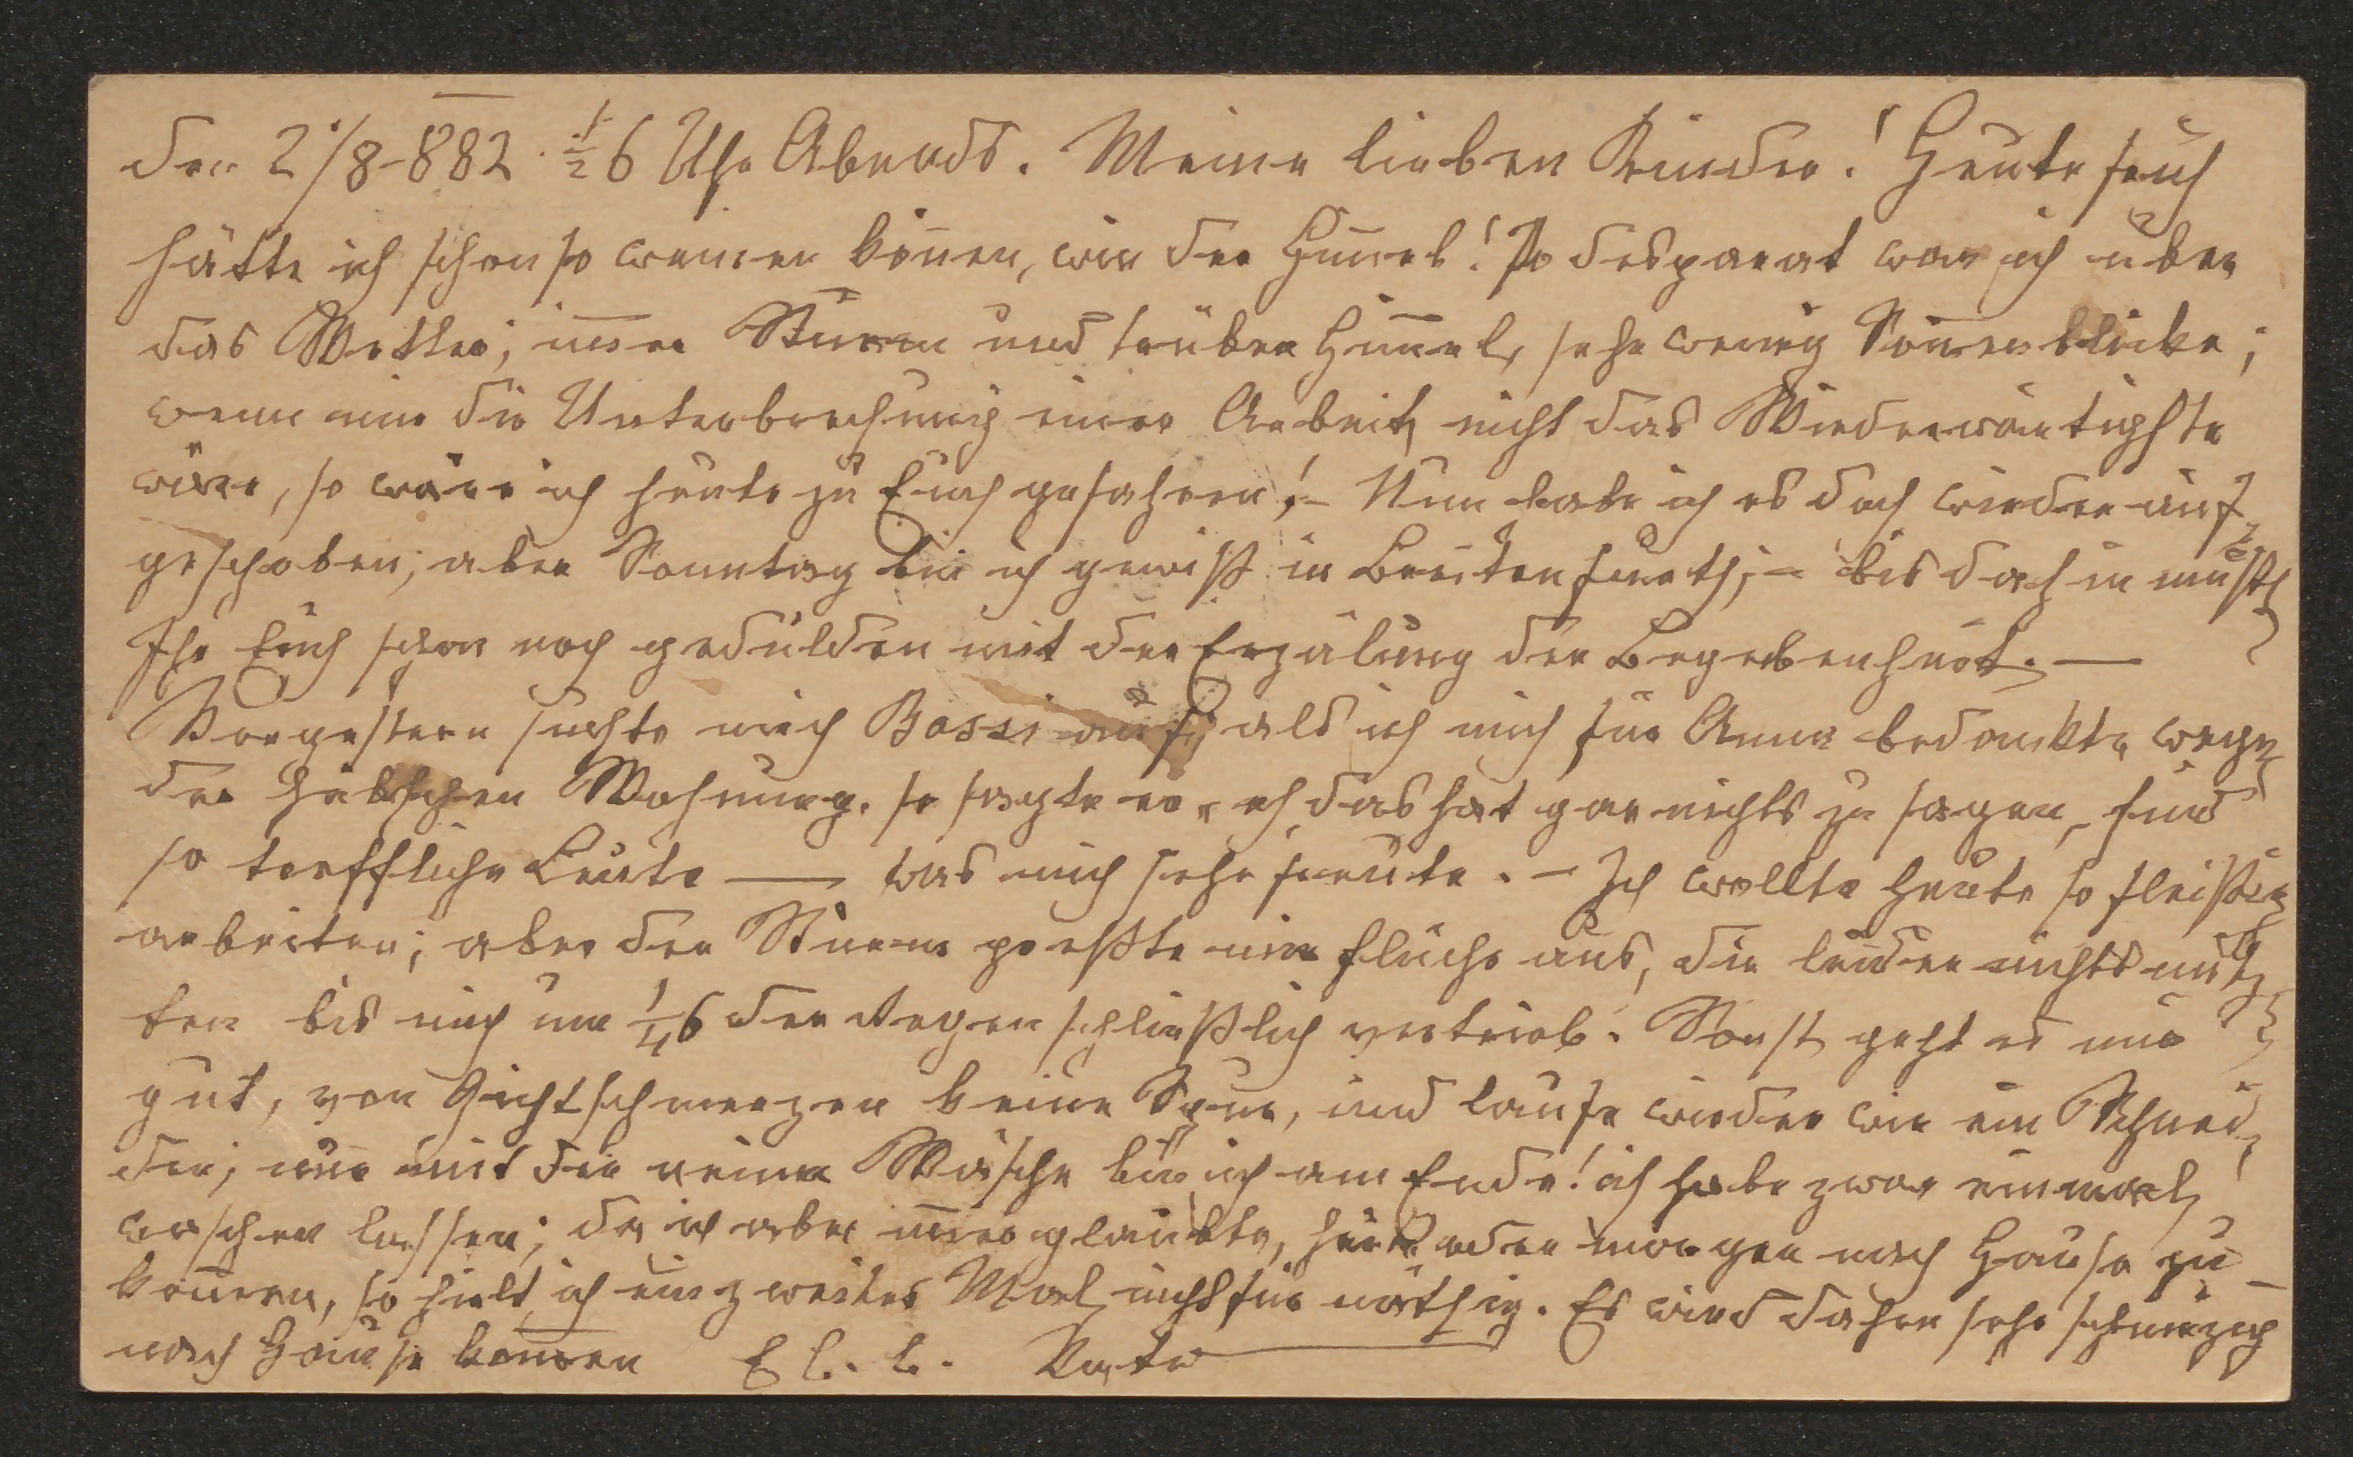 den 2/8-882. ½6 Uhr Abends. Meine lieben Kinder! Heute früh
hätte ich schon so weinen können, wie der Himmel! So desparat war ich über
das Wetter; immer Sturm und trüber Himmel, sehr wenig Sonnenblicke;
wenn mir die Unterbrechung einer Arbeit nicht das Wiederwärtigste
wäre, so wäre ich heute zu Euch gefahren! – Nun habe ich es doch wieder auf-
geschoben; aber Sonntag bin ich gewiß in Breitenfurth; – bis dahin müßt
Ihr Euch schon noch gedulden mit der Erzälung der Begebenheit. —
Vorgestern suchte mich Bossi auf; als ich mich für Anna bedankte wegen
der hübschen Wohnung. so sagte er „eh das hat gar nichts zu sagen, sind
so treffliche Leute — was mich sehr freute. – Ich wollte heute so fleißig
arbeiten; aber der Sturm preßte mir Flüche aus, die leider nichts nütz-
ten bis mich um ¼6 der Regen schließlich vertrieb. Sonst geht es mir
gut, von Gichtschmerzen keine Spur, und laufe wieder wie ein Schnei-
der; nur mit der reinen Wäsche bin ich am Ende! ich habe zwar einmal
waschen lassen; da ich aber immer glaubte, heute oder morgen nach Hause zu
kommen, so hielt ich ein zweites Mal nicht für nöthig. Es wird daher sehr schmuzig
nach Hause kommen E l. b. Vater